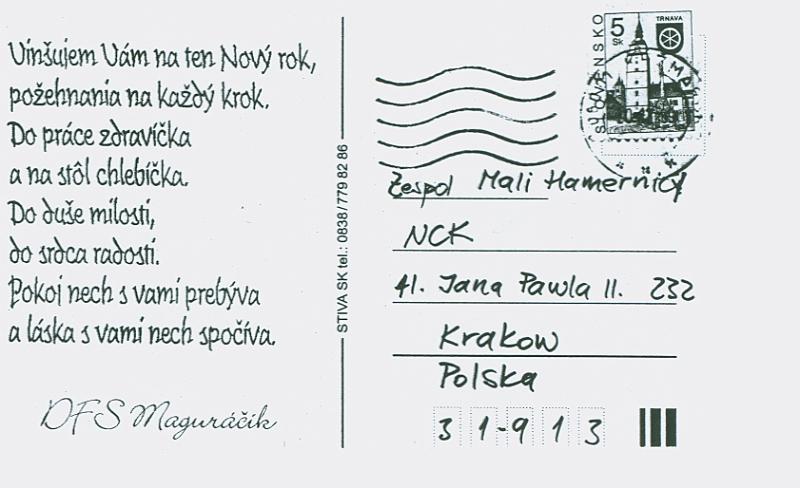 Vinšujem Vám na ten Nový rok,
požehnania na každý krok.
Do práce zdravíčka
a na stôl chlebíčka.
Do duše milosti,
do srdca radosti.
Pokoj nech s vami prebýva
a láska s vami nech spočíva.
DFS Maguráčik
STIVA SK tel.: 0838/779 82 86
SLOVENSKO
5 Sk
TRNAVA
Zespol Mali Hamernicy
NCK
Al. Jana Pawla II. 232
Krakow
Polska
31-913